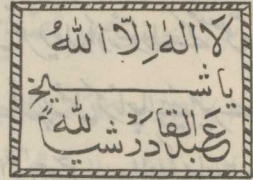 لَا اِلٰهَ اِلَّا اللّٰهُ
یا شیخ
عَبدُ القَادر شیاً للهِ